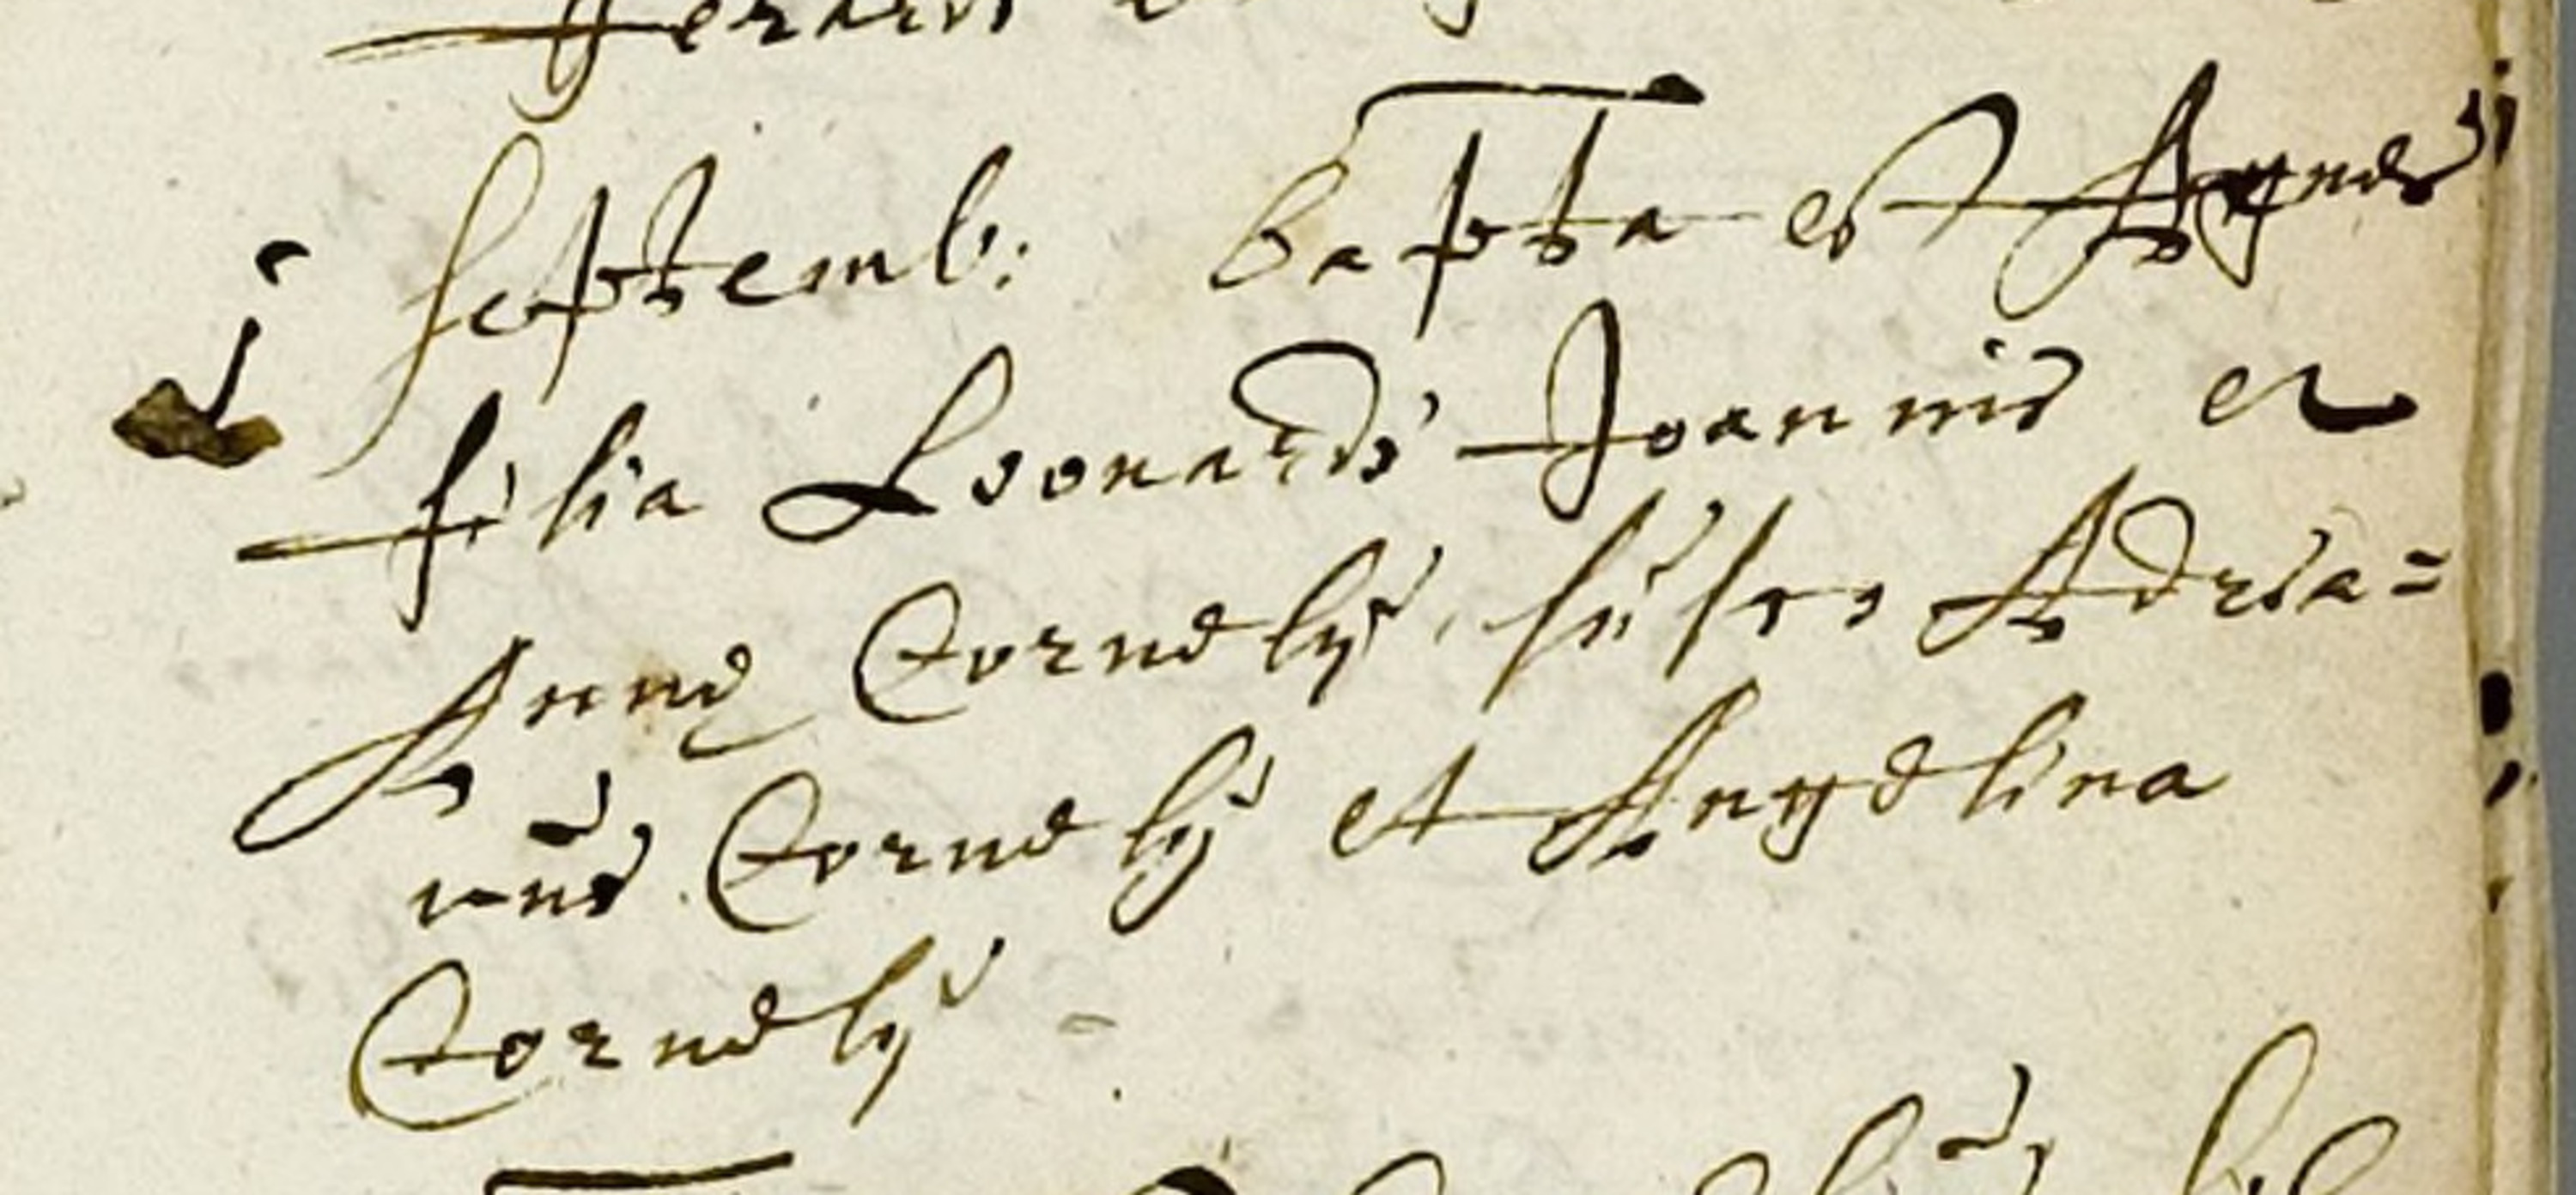 j septemb: bapta est Agnes
filia Leonardi Joannis et
Annę Cornelij, susce Adria=
nus Cornelij et Angelina
Cornelij